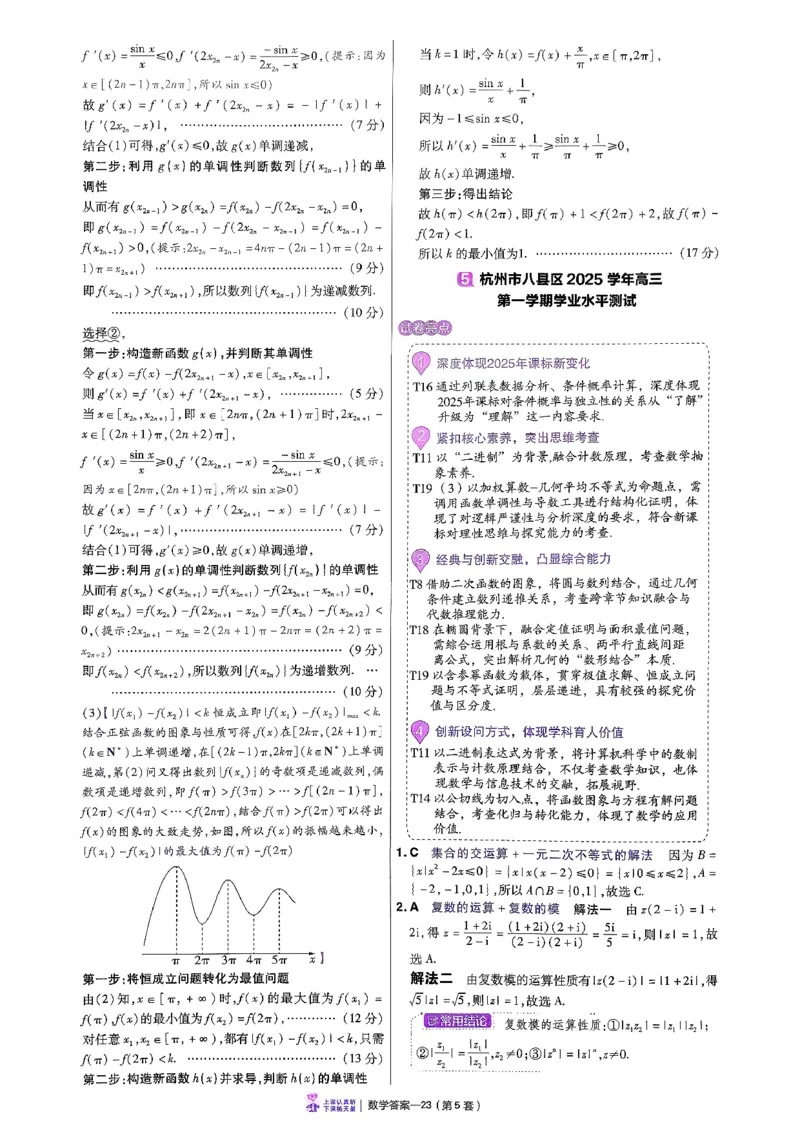 f ′(x) = sin x / x ≤0, f ′(2x₂ₙ − x) = −sin x / (2x₂ₙ − x) ≥0,(提示:因为
x∈[(2n−1)π,2nπ],所以 sin x≤0)
故 g′(x) = f ′(x) + f ′(2x₂ₙ − x) = −|f ′(x)| +
|f ′(2x₂ₙ −x)|, ……………………………… (7分)
结合(1)可得,g′(x)≤0,故 g(x)单调递减,
第二步:利用 g(x)的单调性判断数列{f(x₂ₙ₋₁)}的单
调性
从而有 g(x₂ₙ₋₁)>g(x₂ₙ)=f(x₂ₙ)−f(2x₂ₙ−x₂ₙ)=0,
即 g(x₂ₙ₋₁) = f(x₂ₙ₋₁) − f(2x₂ₙ − x₂ₙ₋₁) = f(x₂ₙ₋₁) −
f(x₂ₙ₊₁)>0,(提示:2x₂ₙ−x₂ₙ₋₁=4nπ−(2n−1)π=(2n+
1)π=x₂ₙ₊₁) ……………………………………… (9分)
即f(x₂ₙ₋₁)>f(x₂ₙ₊₁),所以数列{f(x₂ₙ₋₁)}为递减数列.
……………………………………………… (10分)
选择②,
第一步:构造新函数 g(x),并判断其单调性
令 g(x)=f(x)−f(2x₂ₙ₊₁−x),x∈[x₂ₙ,x₂ₙ₊₁],
则 g′(x)=f ′(x)+f ′(2x₂ₙ₊₁−x), …………… (5分)
当 x∈[x₂ₙ,x₂ₙ₊₁],即 x∈[2nπ,(2n+1)π]时,2x₂ₙ₊₁−
x∈[(2n+1)π,(2n+2)π],
f ′(x) = sin x / x ≥0, f ′(2x₂ₙ₊₁−x) = −sin x / (2x₂ₙ₊₁−x) ≤0,(提示:
因为 x∈[2nπ,(2n+1)π],所以 sin x≥0)
故 g′(x) = f ′(x) + f ′(2x₂ₙ₊₁ − x) = |f ′(x)| −
|f ′(2x₂ₙ₊₁−x)|, ……………………………… (7分)
结合(1)可得,g′(x)≥0,故 g(x)单调递增,
第二步:利用 g(x)的单调性判断数列{f(x₂ₙ)}的单调性
从而有 g(x₂ₙ)<g(x₂ₙ₊₁)=f(x₂ₙ₊₁)−f(2x₂ₙ₊₁−x₂ₙ₊₁)=0,
即 g(x₂ₙ)=f(x₂ₙ)−f(2x₂ₙ₊₁−x₂ₙ)=f(x₂ₙ)−f(x₂ₙ₊₂)<
0,(提示:2x₂ₙ₊₁−x₂ₙ=2(2n+1)π−2nπ=(2n+2)π=
x₂ₙ₊₂) ……………………………………………… (9分)
即f(x₂ₙ)<f(x₂ₙ₊₂),所以数列{f(x₂ₙ)}为递增数列. …
……………………………………………… (10分)
(3)【|f(x₁)−f(x₂)|<k 恒成立即|f(x₁)−f(x₂)|max<k.
结合正弦函数的图象与性质可得,f(x)在[2kπ,(2k+1)π]
(k∈N*)上单调递增,在[(2k−1)π,2kπ](k∈N*)上单调
递减,第(2)问又得出数列{f(xₙ)}的奇数项是递减数列,偶
数项是递增数列,即f(π)>f(3π)>…>f[(2n−1)π],
f(2π)<f(4π)<…<f(2nπ),结合f(π)>f(2π)可以得出
f(x)的图象的大致走势,如图,所以f(x)的振幅越来越小,
|f(x₁)−f(x₂)|的最大值为f(π)−f(2π)
π 2π 3π 4π 5π x】
第一步:将恒成立问题转化为最值问题
由(2)知,x∈[π,+∞)时,f(x)的最大值为f(x₁)=
f(π),f(x)的最小值为f(x₂)=f(2π), ………… (12分)
对任意x₁,x₂∈[π,+∞),都有|f(x₁)−f(x₂)|<k,只需
f(π)−f(2π)<k. ……………………………… (13分)
第二步:构造新函数 h(x)并求导,判断 h(x)的单调性
当 k=1 时,令 h(x)=f(x)+ x/π ,x∈[π,2π],
则 h′(x)= sin x / x + 1/π ,
因为−1≤sin x≤0,
所以 h′(x)= sin x / x + 1/π ≥ sin x / π + 1/π ≥0,
故 h(x)单调递增.
第三步:得出结论
故 h(π)<h(2π),即f(π)+1<f(2π)+2,故f(π)−
f(2π)<1.
所以 k 的最小值为1. …………………………… (17分)
5 杭州市八县区 2025 学年高三
第一学期学业水平测试
试卷亮点
1 深度体现2025年课标新变化
T16 通过列联表数据分析、条件概率计算,深度体现
2025年课标对条件概率与独立性的关系从“了解”
升级为“理解”这一内容要求.
2 紧扣核心素养,突出思维考查
T11 以“二进制”为背景,融合计数原理,考查数学抽
象素养.
T19(3)以加权算数-几何平均不等式为命题点,需
调用函数单调性与导数工具进行结构化证明,体
现了对逻辑严谨性与分析深度的要求,符合新课
标对理性思维与探究能力的考查.
3 经典与创新交融,凸显综合能力
T8 借助二次函数的图象,将圆与数列结合,通过几何
条件建立数列递推关系,考查跨章节知识融合与
代数推理能力.
T18 在椭圆背景下,融合定值证明与面积最值问题,
需综合运用根与系数的关系、两平行直线间距
离公式,突出解析几何的“数形结合”本质.
T19 以含参幂函数为载体,贯穿极值求解、恒成立问
题与不等式证明,层层递进,具有较强的探究价
值与区分度.
4 创新设问方式,体现学科育人价值
T11 以二进制表达式为背景,将计算机科学中的数制
表示与计数原理结合,不仅考查数学知识,也体
现数学与信息技术的交融,拓展视野.
T14 以公切线为切入点,将函数图象与方程有解问题
结合,考查化归与转化能力,体现了数学的应用
价值.
1.C 集合的交运算+一元二次不等式的解法 因为 B=
{x|x²−2x≤0}={x|x(x−2)≤0}={x|0≤x≤2},A=
{−2,−1,0,1},所以 A∩B={0,1},故选 C.
2.A 复数的运算+复数的模 解法一 由 z(2−i)=1+
2i,得 z= (1+2i)/(2−i) = (1+2i)(2+i)/((2−i)(2+i)) = 5i/5 =i,则|z|=1,故
选 A.
解法二 由复数模的运算性质有|z(2−i)|=|1+2i|,得
√5|z|=√5,则|z|=1,故选 A.
常用结论 复数模的运算性质:①|z₁z₂|=|z₁||z₂|;
②|z₁/z₂|=|z₁|/|z₂|,z₂≠0;③|zⁿ|=|z|ⁿ,z≠0.
上课认真听
下课练天星 数学答案—23(第5套)